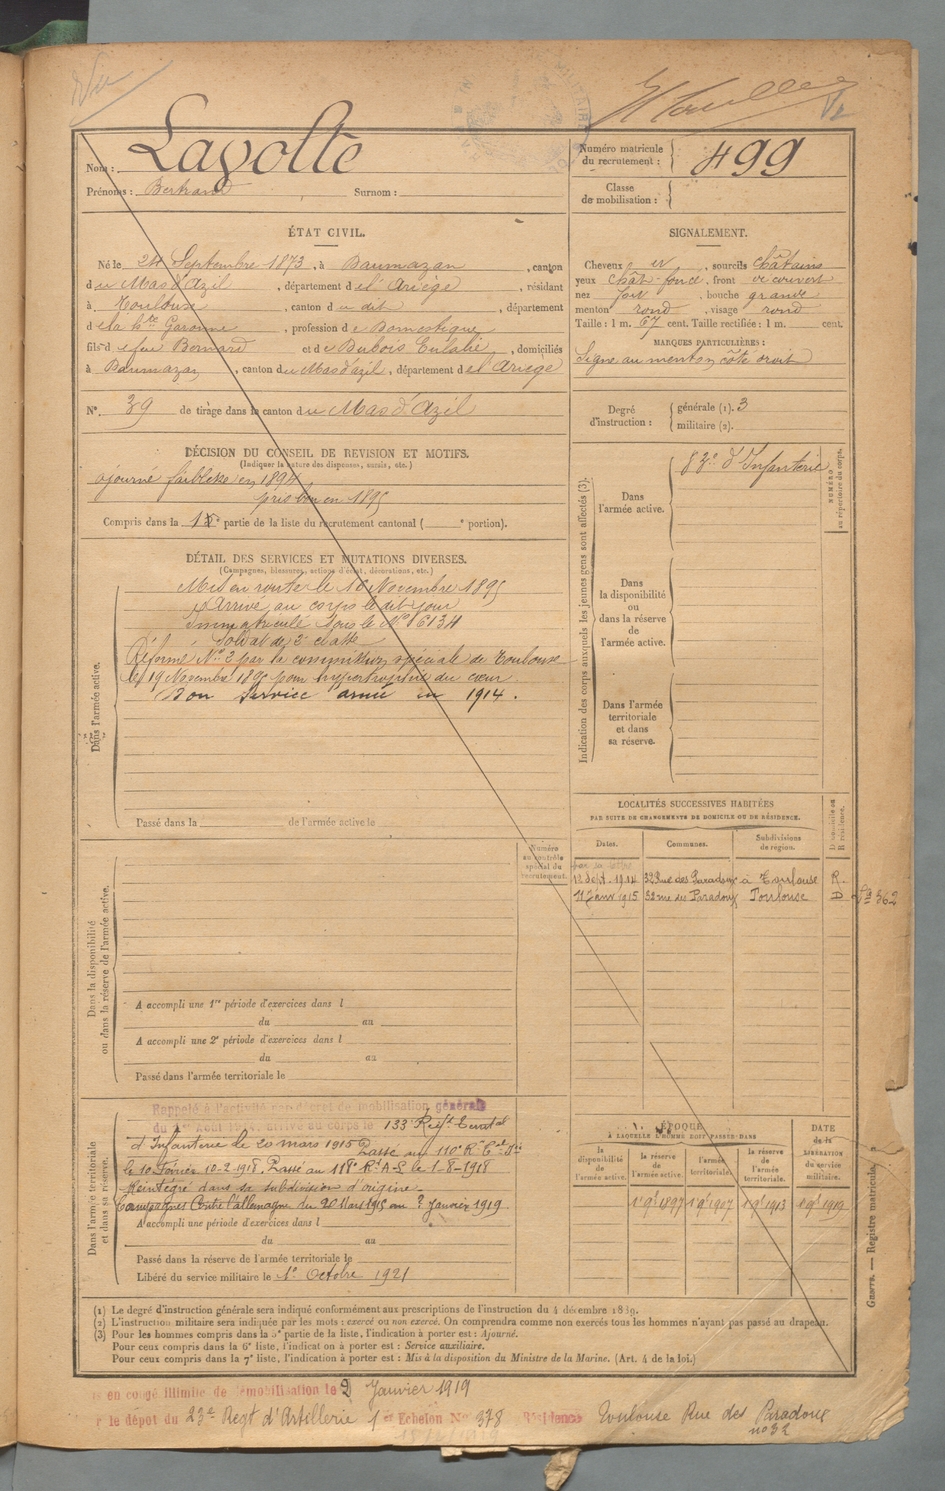 Lavolte
Nom :
Prénoms : Bertrand Surnom :
Numéro matricule
du recrutement : 499
Classe
de mobilisation :
ÉTAT CIVIL.
Né le 24 Septembre 1873, à Daumazan, canton
du Mas d'Azil, département de l'Ariège, résidant
à Toulouse, canton du dit, département
de la hte Garonne, profession de Domestique
fils de feu Bernard et de Dubois Eulalie, domiciliés
à Daumazan, canton du Mas d'Azil, département de l'Ariège
N° 39 de tirage dans le canton du Mas d'Azil
SIGNALEMENT.
Cheveux et, sourcils châtains
yeux chât. foncé, front découvert
nez fort, bouche grande
menton rond, visage rond
Taille : 1 m. 67 cent. Taille rectifiée : 1 m. cent.
MARQUES PARTICULIÈRES :
Signe au menton côté droit
Degré
d'instruction :
générale (1). 3
militaire (2).
DÉCISION DU CONSEIL DE REVISION ET MOTIFS.
(Indiquer la nature des dispenses, sursis, etc.)
ajourné faiblesse en 1894
pris bon en 1895
Compris dans la 1e partie de la liste du recrutement cantonal ( e portion).
DÉTAIL DES SERVICES ET MUTATIONS DIVERSES.
(Campagnes, blessures, actions d'éclat, décorations, etc.)
Dans l'armée active.
Mis en route le 16 Novembre 1895
Arrivé au corps le dit jour
Immatriculé sous le N° 6134
Soldat de 2e classe
Réformé N° 2 par la commission spéciale de Toulouse
le 19 Novembre 1895 pour hypertrophie du cœur.
Bon service armé en 1914.
Passé dans la de l'armée active le
Indication des corps auxquels les jeunes gens sont affectés (3).
Dans
l'armée active.
83e d'Infanterie
NUMÉRO
au répertoire du corps.
Dans
la disponibilité
ou
dans la réserve
de
l'armée active.
Dans l'armée
territoriale
et dans
sa réserve.
LOCALITÉS SUCCESSIVES HABITÉES
PAR SUITE DE CHANGEMENTS DE DOMICILE OU DE RÉSIDENCE.
D domicile ou
R résidence.
Dates. Communes. Subdivisions
de région.
12 Sept. 1914 32 Rue des Paradoux à Toulouse R
11 Janv 1915 32 rue des Paradoux Toulouse D
362
Numéro
au contrôle
spécial du
recrutement.
Dans la disponibilité
ou dans la réserve de l'armée active.
A accompli une 1re période d'exercices dans l
du au
A accompli une 2e période d'exercices dans l
du au
Passé dans l'armée territoriale le
Dans l'armée territoriale
et dans sa réserve.
Rappelé à l'activité par décret de mobilisation générale
du 1er Août 1914. Arrivé au corps le 133 Regt Territ al
d'Infanterie le 20 mars 1915 Passé au 110e
le 10 Février 10-2-1918. Passé au 118e R. A. L le 1-8-1918
Réintégré dans sa subdivision d'origine
Campagnes Contre l'allemagne du 20 Mars 1915 au 2 Janvier 1919.
A accompli une période d'exercices dans l
du au
Passé dans la réserve de l'armée territoriale le
Libéré du service militaire le 1er Octobre 1921
ÉPOQUE
À LAQUELLE L'HOMME DOIT PASSER DANS
DATE
de la
LIBÉRATION
du service
militaire.
la
disponibilité
de
l'armée active.
la réserve
de
l'armée active.
l'armée
territoriale.
la réserve
de
l'armée
territoriale.
1er 9bre 1897 1er 9bre 1907 1er 9bre 1913 1er 9bre 1919
(1) Le degré d'instruction générale sera indiqué conformément aux prescriptions de l'instruction du 4 décembre 1889.
(2) L'instruction militaire sera indiquée par les mots : exercé ou non exercé. On comprendra comme non exercés tous les hommes n'ayant pas passé au drapeau.
(3) Pour les hommes compris dans la 5e partie de la liste, l'indication à porter est : Ajourné.
Pour ceux compris dans la 6e liste, l'indication à porter est : Service auxiliaire.
Pour ceux compris dans la 7e liste, l'indication à porter est : Mis à la disposition du Ministre de la Marine. (Art. 4 de la loi.)
Guerre. — Registre matricule.
is en congé illimité de démobilisation le 2 Janvier 1919
r le dépôt du 23e Regt d'Artillerie 1er Echelon N° 378 Résidence Toulouse Rue des Paradoux
no 32